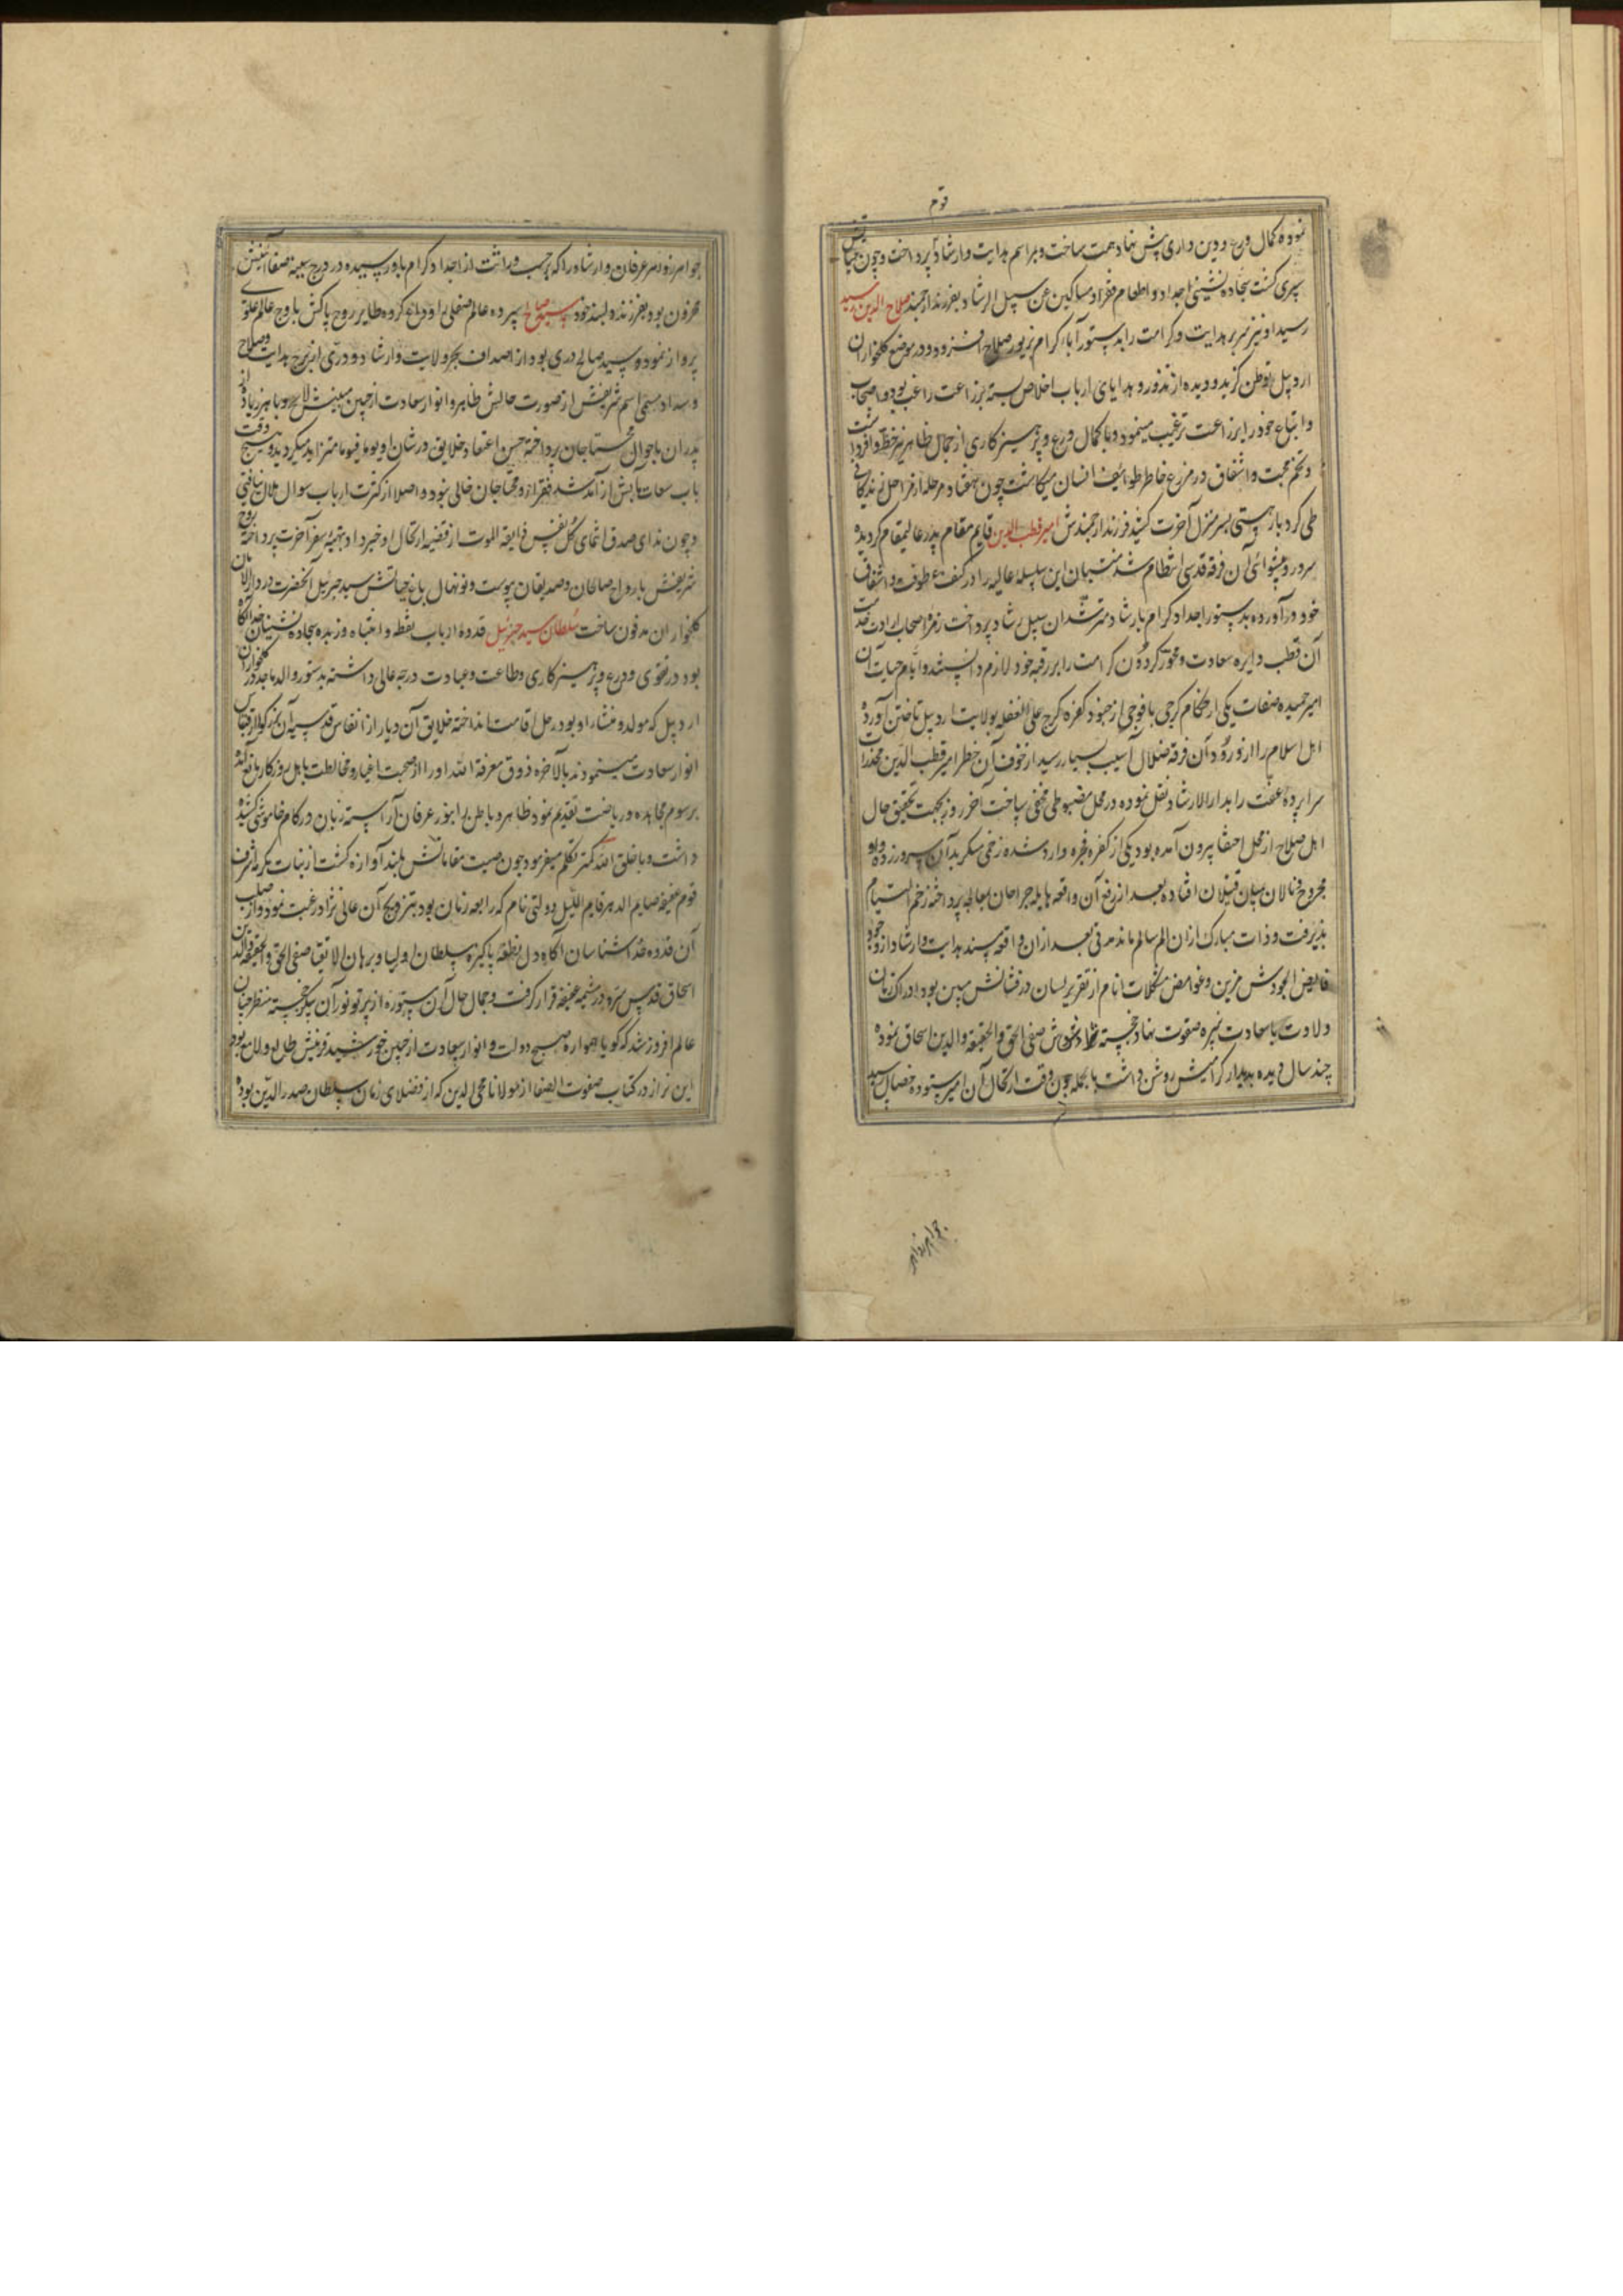 قوم
نموده کمال ورع و دین داری پیش نهاد همت ساخت و بمراسم هدایت و ارشاد پرداخت و چون
سپری کشت سجاده نشینی اجداد و اطعام فقرا و مساکین عن سبیل الرشاد بفرزند ارجمند صلاح الدین رشید
رسید او نیز سریر هدایت و کرامت را بدستور آباء کرام بزیور صلاح افزوده و در موضع کلخواران
اردبیل توطن کزید و دیده از نذور و هدایای ارباب اخلاص بسته بزراعت راغب بود و اصحاب
و اتباع خود را بزراعت ترغیب مینمود و با کمال ورع و پرهیزکاری از جمال ظاهر نیز حظ وافر داشت
و تخم محبت و اشفاق در مزرع خاطر طوایف انسان میکاشت چون هفتاد مرحله از مراحل زندکانی
طی کرد بار هستی بسر منزل آخرت کشید فرزند ارجمندش امیر قطب الدین قایم مقام پدر عالیمقام کردیده
سرور و پیشوای آن فرقه قدسی انتظام شد منتسبان این سلسله عالیه را در کنف عطوفت و اشفاق
خود درآورده بدستور اجداد کرام بارشاد مسترشدان سبیل رشاد پرداخت زمره اصحاب ارادت خدمت
آن قطب دایره سعادت و محور کردون کرامت را بر رقبه خود لازم دانستند و ایام حیات آن
امیر حمیده صفات یکی از حکام کرجی با فوجی از جنود کفره کرج علی الغفله بولایت اردبیل تاختن آورده
اهل اسلام را از ورود آن فرقه ضلال آسیب بسیار رسید از خوف آن خطر امیر قطب الدین مخدرات
سراپرده عفت را بدار الارشاد نقل نموده در محل مضبوطی مخفی ساخت آخر روز بجهت تحقیق حال
اهل صلاح از محل اختفا بیرون آمده بود یکی از کفره فجره وارد شده زخمی منکر بدآن سرور زده و او
مجروح و نالان میان قتیلان افتاده بعد از رفع آن واقعه هایله جراحان بمعالجه پرداخته زخم التیام
پذیرفت و ذات مبارک از ان الم سالم ماند مدتی بعد از ان واقعه مسند هدایت و ارشاد از وجود
فایض الجودش مزین و غوامض مشکلات انام از تقریر لسان درفشانش مبین بود ادراک زمان
ولادت با سعادت نبیره صفوت نهاد خجسته صفی الحق و الحقیقه و الدین اسحاق نموده
چند سال دیده بدیدار کرامیش روشن داشت بالجمله چون وقت ارتحال آن امیر ستوده خصال رسید
جواهر زواهر
جواهر زواهر عرفان و ارشاد را که بحسب وراثت از اجداد کرام باو رسیده در درج سینه صفا آیینش
مخزون بود بفرزند دلبند خود سید صالح سپرده عالم سفلی را وداع کرده طایر روح پاکش باوج عالم علوی
پرواز نمود و سید صالح دری بود از اصداف بحر ولایت و ارشاد و دری از برج هدایت و صلاح
و سداد مسمی اسم شریفش از صورت حالش ظاهر و انوار سعادت از جبین مبینش لایح و باهر زیاده از
پدران باحوال محتاجان پرداخته حسن اعتقاد خلایق در شان او یوما فیوما متزاید میکردید و هیچ وقت
باب سعادت مآبش از آمد شد فقرا و محتاجان خالی نبوده و اصلا از کثرت ارباب سوال ملال نیافتی
و چون ندای صدق انتمای کل نفس ذایقة الموت از قضیه ارتحال او خبر داد بتهیه سفر آخرت پرداخته روح
شریفش بارواح صالحان و صدیقان پیوست و نونهال باغ حیاتش سید جبرئیل آنحضرت را در دار الامان
کلخواران مدفون ساخت سلطان سید جبرئیل قدوه ارباب یقظه و انتباه و زبده سجاده نشینان خدا آکاه
بود در تقوی و ورع و پرهیزکاری و طاعت و عبادت درجه عالی داشته بدستور والد ماجد در کلخواران
اردبیل که مولد و منشاء او بود رحل اقامت انداخته خلایق آن دیار از انفاس قدسیه آن بزرکوار اقتباس
انوار سعادت مینمودند بالآخره ذوق معرفة الله او را از صحبت اغیار و مخالطت باهل روزکار مانع آمده
برسوم مجاهده و ریاضت تقدیم نمود ظاهر و باطن را بنور عرفان آراسته زبان در کام خاموشی کشیده
داشت و با خلق الله کمتر تکلم میفرمود چون صیت مقاماتش بلند آوازه کشت از بنات مکرمه اشرف
قوم عفیفه صایم الدهر قایم اللیل دولتی نام که رابعه زمان بود بتزویج آن عالی نژاد رغبت نمود و از صلب
آن قدوه خداشناسان آکاه دل نطفه پاکیزه سلطان اولیا و برهان الاتقیا صفی الحق و الحقیقه و الدین
اسحاق قدس سره در مشیمه عفیفه قرار کرفت و جمال حال آن مستوره از پرتو نور آن پیکر خجسته منظر چنان
عالم افروز شد که کویا همواره صبح دولت و انوار سعادت از جبین خورشید قرینش طالع و لامع بود
این نر از در کتاب صفوت الصفا از مولانا محی الدین که از فضلای زمان سلطان صدر الدین بوده